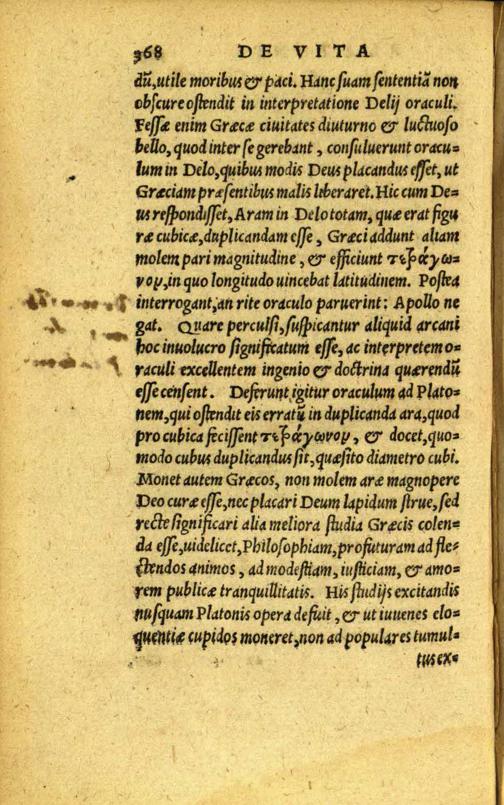 368 DE VITA
dū, utile moribus & paci. Hanc suam sententiā non
obscure ostendit in interpretatione Delij oraculi.
Fessæ enim Græcæ ciuitates diuturno & luctuoso
bello, quod inter se gerebant, consuluerunt oracu=
lum in Delo, quibus modis Deus placandus esset, ut
Græciam præsentibus malis liberaret. Hic cum De=
us respondisset, Aram in Delo totam, quæ erat figu
ræ cubicæ, duplicandam esse, Græci addunt aliam
molem pari magnitudine, & efficiunt τετράγω=
νον, in quo longitudo uincebat latitudinem. Postea
interrogant, an rite oraculo paruerint: Apollo ne
gat. Quare perculsi, suspicantur aliquid arcani
hoc inuolucro significatum esse, ac interpretem o=
raculi excellentem ingenio & doctrina quærendū
esse censent. Deferunt igitur oraculum ad Plato=
nem, qui ostendit eis erratū in duplicanda ara, quod
pro cubica fecissent τετράγωνον, & docet, quo=
modo cubus duplicandus sit, quæsito diametro cubi.
Monet autem Græcos, non molem aræ magnopere
Deo curæ esse, nec placari Deum lapidum strue, sed
recte significari alia meliora studia Græcis colen=
da esse, uidelicet, Philosophiam, profuturam ad fle=
ctendos animos, ad modestiam, iusticiam, & amo=
rem publicæ tranquillitatis. His studijs excitandis
nusquam Platonis opera defuit, & ut iuuenes elo=
quentiæ cupidos moneret, non ad populares tumul=
tus ex=